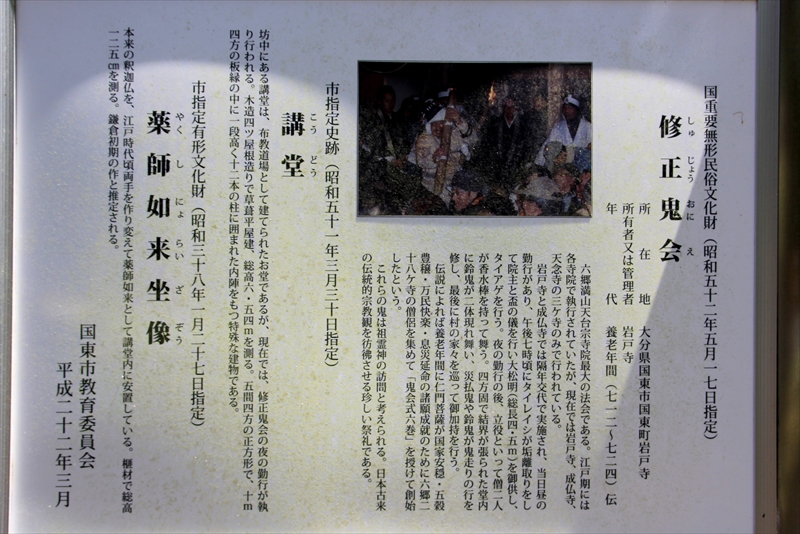 国重要無形民俗文化財（昭和五十二年五月一七日指定）
しゅ じょう おに え
修正鬼会
所在地 大分県国東市国東町岩戸寺
所有者又は管理者 岩戸寺
年代 養老年間（七一二～七二四）伝
六郷満山天台宗寺院最大の法会である。江戸期には
各寺院で執行されていたが、現在では岩戸寺、成仏寺、
天念寺の三ケ寺のみで行われている。
岩戸寺と成仏寺では隔年交代で実施され、当日昼の
勤行があり、午後七時頃にタイレイシが垢離取りをし
て院主と盃の儀を行い大松明（総長四・五ｍ）を御供し、
タイアゲを行う。夜の勤行の後、立役といって僧二人
が香水棒を持って舞う。四方固で結界が張られた堂内
に鈴鬼が二体現れ舞い、災払鬼や鈴鬼が鬼走りの行を
修し、最後に村の家々を巡って御加持を行う。
伝説によれば養老年間に仁門菩薩が国家安穏・五穀
豊穣・万民快楽・息災延命の諸願成就のために六郷二
十八ケ寺の僧侶を集めて「鬼会式六巻」を授けて創始
したという。
これらの鬼は祖霊神の訪問と考えられる。日本古来
の伝統的宗教観を彷彿させる珍しい祭礼である。
市指定史跡（昭和五十一年三月三十日指定）
こう どう
講堂
坊中にある講堂は、布教道場として建てられたお堂であるが、現在では、修正鬼会の夜の勤行が執
り行われる。木造四ツ屋根造りで草葺平屋建、総高六・五四ｍを測る。五間四方の正方形で、十ｍ
四方の板縁の中に一段高く十二本の柱に囲まれた内陣をもつ特殊な建物である。
市指定有形文化財（昭和三十八年一月二十七日指定）
やく し にょ らい ざ ぞう
薬師如来坐像
本来の釈迦仏を、江戸時代頃両手を作り変えて薬師如来として講堂内に安置している。榧材で総高
一二五㎝を測る。鎌倉初期の作と推定される。
国東市教育委員会
平成二十二年三月